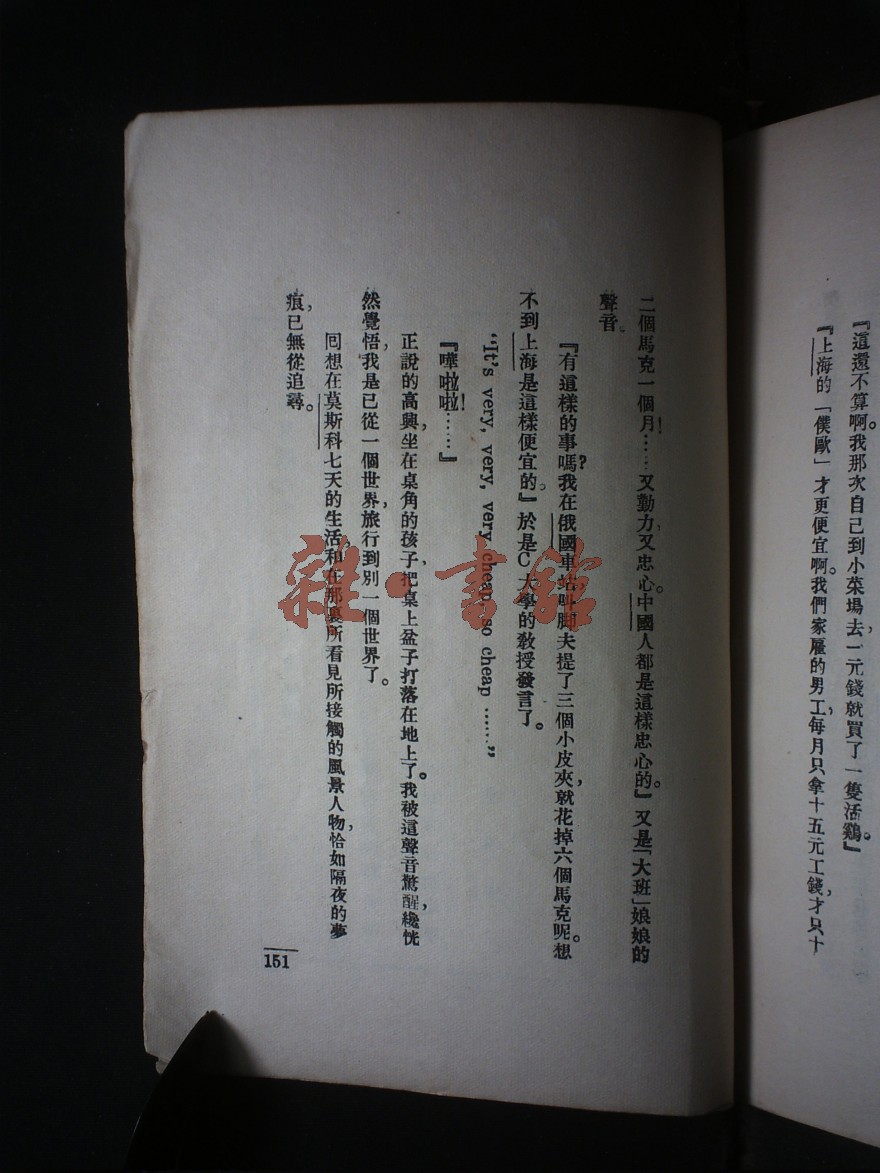 『這還不算啊。我那次自己到小菜場去，一元錢就買了一隻活鷄。』
『上海的「僕歐」才更便宜啊。我們家雇的男工，每月只拿十五元工錢，才只十
二個馬克一個月！……又勤力，又忠心。中國人都是這樣忠心的。』又是「大班」娘娘的
聲音。
『有這樣的事嗎？我在俄國車站，叫脚夫提了三個小皮夾，就花掉六個馬克呢。想
不到上海是這樣便宜的。』於是C大學的敎授發言了。
"It's very, very, very cheap, so cheap ……"
『嘩啦啦！……』
正說的高興，坐在桌角的孩子，把桌上盆子打落在地上了。我被這聲音驚醒，纔恍
然覺悟，我是已從一個世界，旅行到別一個世界了。
囘想在莫斯科七天的生活，和在那裏所看見所接觸的風景人物，恰如隔夜的夢
痕，已無從追尋。
151
雜·書館